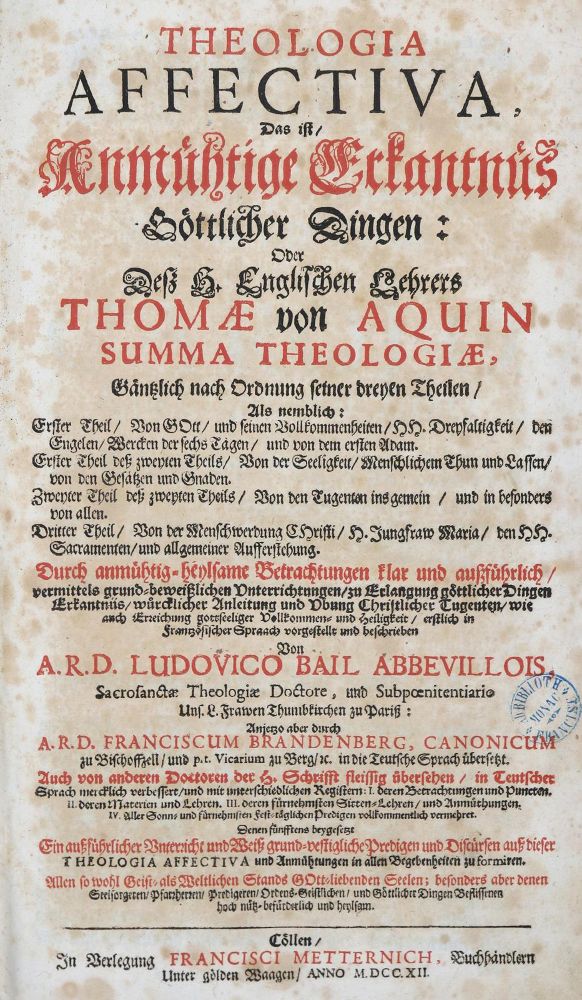 THEOLOGIA
AFFECTIVA,
Das ist/
Anmühtige Erkantnüs
Göttlicher Dingen:
Oder
Deß H. Englischen Lehrers
THOMÆ von AQUIN
SUMMA THEOLOGIÆ,
Gäntzlich nach Ordnung seiner dreyen Theilen/
Als nemblich:
Erster Theil/ Von GOtt/ und seinen Vollkommenheiten/ HH. Dreyfaltigkeit/ den
Engelen/ Wercken der sechs Tägen/ und von dem ersten Adam.
Erster Theil deß zweyten Theils/ Von der Seeligkeit/ Menschlichem Thun und Lassen/
von den Gesätzen und Gnaden.
Zweyter Theil deß zweyten Theils/ Von den Tugenten ins gemein/ und in besonders
von allen.
Dritter Theil/ Von der Menschwerdung CHristi/ H. Jungfraw Maria/ den HH.
Sacramenten/ und allgemeiner Aufferstehung.
Durch anmühtig-heylsame Betrachtungen klar und außführlich/
vermittels grund-beweißlichen Unterrichtungen/ zu Erlangung göttlicher Dingen
Erkantnüs/ würcklicher Anleitung und Ubung Christlicher Tugenten/ wie
auch Erreichung gottseeliger Vollkommen- und Heiligkeit/ erstlich in
Frantzösischer Spraach vorgestellt und beschrieben
Von
A.R.D. LUDOVICO BAIL ABBEVILLOIS,
Sacrosanctæ Theologiæ Doctore, und Subpœnitentiario
Uns. L. Frawen Thumbkirchen zu Pariß:
Anjetzo aber durch
A.R.D. FRANCISCUM BRANDENBERG, CANONICUM
zu Bischoffzell/ und p.t. Vicarium zu Berg/ ꝛc. in die Teutsche Sprach übersetzt.
Auch von anderen Doctoren der H. Schrifft fleissig übersehen/ in Teutscher
Sprach mercklich verbessert/ und mit unterschiedlichen Registern: I. deren Betrachtungen und Puncten.
II. deren Materien und Lehren. III. deren fürnehmsten Sitten-Lehren/ und Anmühtungen.
IV. Aller Sonn- und fürnehmsten Fest-täglichen Predigen vollkommentlich vermehret.
Denen fünfftens beygesetzt
Ein außführlicher Unterricht und Weiß grund-vestigliche Predigen und Discursen auß dieser
THEOLOGIA AFFECTIVA und Anmühtungen in allen Begebenheiten zu formiren.
Allen so wohl Geist- als Weltlichen Stands GOtt-liebenden Seelen; besonders aber denen
Seelsorgeren/ Pfarrherren/ Predigeren/ Ordens-Geistlichen/ und Göttlicher Dingen Beflissenen
hoch nütz- befürderlich und heylsam.
Cöllen/
In Verlegung FRANCISCI METTERNICH, Buchhändlern
Unter gölden Waagen/ ANNO M.DCC.XII.